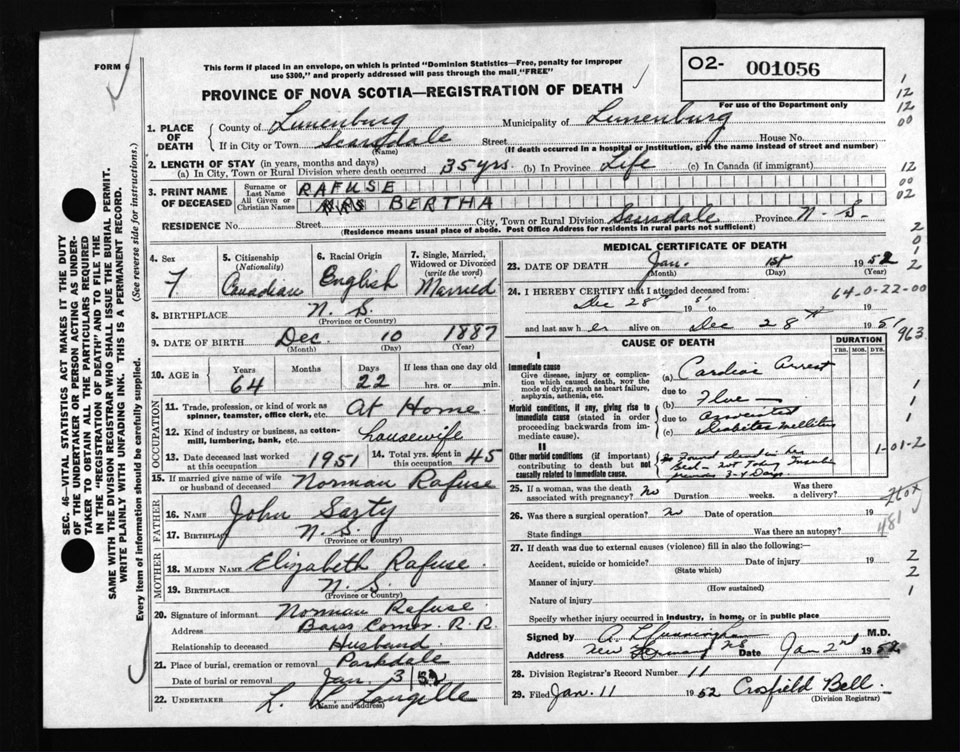 FORM 6
This form if placed in an envelope, on which is printed "Dominion Statistics—Free, penalty for improper
use $300," and properly addressed will pass through the mail "FREE"
O2- 001056
PROVINCE OF NOVA SCOTIA—REGISTRATION OF DEATH
For use of the Department only
1. PLACE OF DEATH
County of Lunenburg Municipality of Lunenburg
If in City or Town Scarsdale Street House No.
(Name) (If death occurred in a hospital or institution, give the name instead of street and number)
2. LENGTH OF STAY (in years, months and days)
(a) In City, Town or Rural Division where death occurred 35 yrs. (b) In Province Life (c) In Canada (if immigrant)
3. PRINT NAME OF DECEASED
Surname or Last Name RAFUSE
All Given or Christian Names BERTHA
RESIDENCE No. Street City, Town or Rural Division Scarsdale Province N. S.
(Residence means usual place of abode. Post Office Address for residents in rural parts not sufficient)
4. Sex F
5. Citizenship (Nationality) Canadian
6. Racial Origin English
7. Single, Married, Widowed or Divorced (write the word) Married
8. BIRTHPLACE N. S.
(Province or Country)
9. DATE OF BIRTH Dec 10 1887
(Month) (Day) (Year)
10. AGE in Years 64 Months Days 22 If less than one day old hrs. or min.
OCCUPATION
11. Trade, profession, or kind of work as spinner, teamster, office clerk, etc. At Home
12. Kind of industry or business, as cotton-mill, lumbering, bank, etc. housewife
13. Date deceased last worked at this occupation 1951
14. Total yrs. spent in this occupation 45
15. If married give name of wife or husband of deceased Norman Rafuse
FATHER
16. NAME John Sarty
17. BIRTHPLACE N. S.
(Province or Country)
MOTHER
18. MAIDEN NAME Elizabeth Rafuse
19. BIRTHPLACE N. S.
(Province or Country)
20. Signature of informant Norman Rafuse
Address Corner R.R.
Relationship to deceased Husband
21. Place of burial, cremation or removal Parkdale
Date of burial or removal Jan. 3 52
22. UNDERTAKER L. Langille
(Name and address)
MEDICAL CERTIFICATE OF DEATH
23. DATE OF DEATH Jan. 1st 1952
(Month) (Day) (Year)
24. I HEREBY CERTIFY that I attended deceased from:
Dec 28th 1951 to 19
64-0-22-00
and last saw her alive on Dec 28th 1951
963
CAUSE OF DEATH
DURATION
YRS. MOS. DYS.
I
Immediate cause
Give disease, injury or complication which caused death, NOT the mode of dying, such as heart failure, asphyxia, asthenia, etc.
(a) Cardiac Arrest
due to
Morbid conditions, if any, giving rise to immediate cause (stated in order proceeding backwards from immediate cause).
(b) Flue
due to
(c) Diabetes Mellitus
II
Other morbid conditions (if important) contributing to death but not causally related to immediate cause.
Found dead in bed
Insulin
3-4 Days
1-01-2
25. If a woman, was the death associated with pregnancy? No Duration weeks. Was there a delivery?
26. Was there a surgical operation? No Date of operation 19
State findings Was there an autopsy?
481
27. If death was due to external causes (violence) fill in also the following:—
Accident, suicide or homicide? Date of injury 19
(State which)
Manner of injury
(How sustained)
Nature of injury
Specify whether injury occurred in industry, in home, or in public place
Signed by A. Cunningham M.D.
Address New Germany NS Date Jan 2nd 1952
28. Division Registrar's Record Number 11
29. Filed Jan. 11 1952 Crosfield Bell.
(Division Registrar)
SEC. 46—VITAL STATISTICS ACT MAKES IT THE DUTY
OF THE UNDERTAKER OR PERSON ACTING AS UNDER-
TAKER TO OBTAIN ALL THE PARTICULARS REQUIRED
IN THE "REGISTRATION OF DEATH" AND TO FILE THE
SAME WITH THE DIVISION REGISTRAR WHO SHALL ISSUE THE BURIAL PERMIT.
WRITE PLAINLY WITH UNFADING INK. THIS IS A PERMANENT RECORD.
Every item of information should be carefully supplied. (See reverse side for instructions.)
1
12
12
00
12
00
02
2
0
1
2
1
1
1
2
2
1